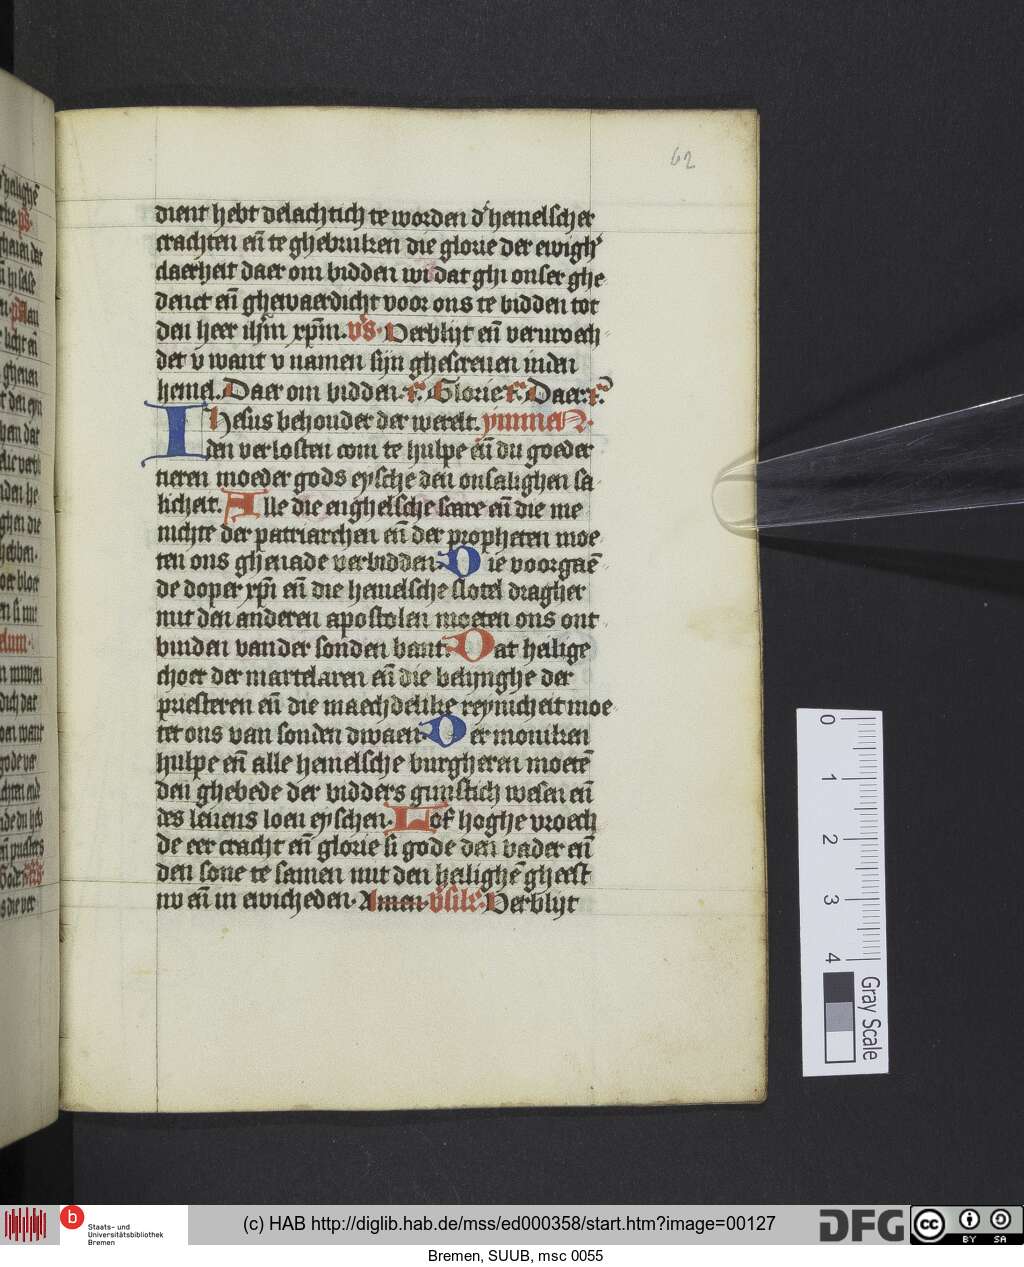 62
dient hebt delachtich te worden d' hemelscher
crachten eñ te ghebruken die glorie der ewigh'
claerheit daer om bidden wi dat ghi onser ghe
denct eñ ghewaerdicht voor ons te bidden tot
den heer ihm̄ xpm̄. v's. Verblijt eñ vervroech
det v want v namen sijn ghescreuen inden
hemel. Daer om bidden. r'. Glorie. r'. Daer. r'.
Ihesus behouder der werelt. ymmen.
den verlosten com te hulpe eñ du goeder
tieren moeder gods eysche den onsalighen sa
licheit. Alle die enghelsche scare eñ die me
nichte der patriarchen eñ der propheten moe
ten ons ghenade verbidden. Die voorgaē
de doper xpi eñ die hemelsche slotel dragher
mit den anderen apostolen moeten ons ont
binden vander sonden bant. Dat heilige
choer der martelaren eñ die belijnghe der
priesteren eñ die maechdelike reynicheit moe
ter ons van sonden dwaen. Der moniken
hulpe eñ alle hemelsche burgheren moetē
den ghebede der bidders gunstich wesen eñ
des leuens loen eyschen. Lof hoghe vroech
de eer cracht eñ glorie si gode den vader eñ
den sone te samen mit den heilighē gheest
nv eñ in ewicheden. Amen. v'sile. Verblijt
0
1
2
3
4
Gray Scale
b
Staats- und
Universitätsbibliothek
Bremen
(c) HAB http://diglib.hab.de/mss/ed000358/start.htm?image=00127
DFG
cc
BY SA
Bremen, SUUB, msc 0055